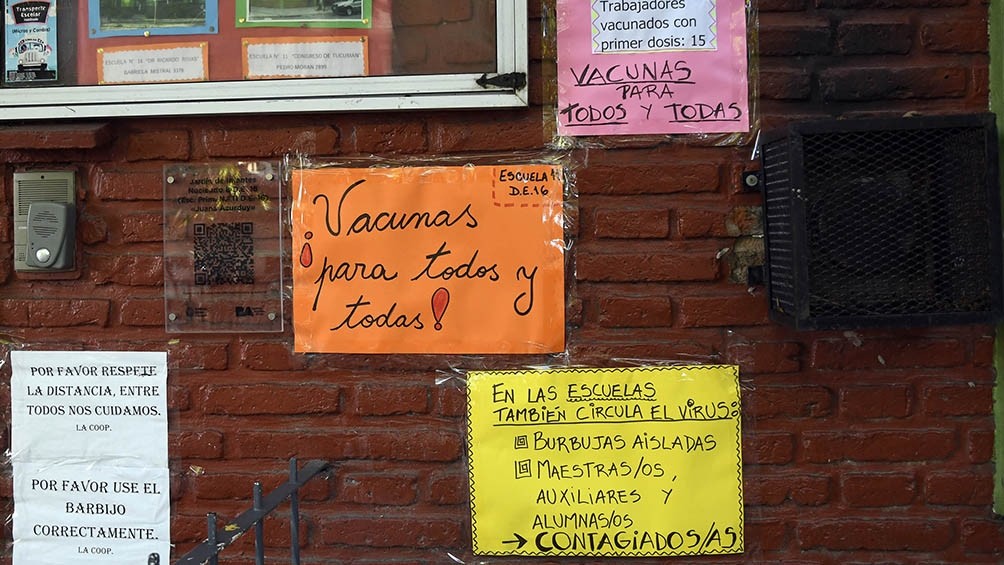 Transporte
Escolar
ESCUELA N° 16 "DR RICARDO ROJAS"
GABRIELA MISTRAL 3176
ESCUELA N° 11 "CONGRESO DE TUCUMAN"
PEDRO MORAN
Trabajadores
vacunados con
primer dosis: 15
VACUNAS
PARA
TODOS Y TODAS
Jardín de Infantes
D.E. 16
«Juana Azurduy»
BA
ESCUELA
D.E.16
Vacunas
¡para todos y
todas!
POR FAVOR RESPETE
LA DISTANCIA, ENTRE
TODOS NOS CUIDAMOS.
LA COOP.
POR FAVOR USE EL
BARBIJO
CORRECTAMENTE.
LA COOP.
EN LAS ESCUELAS
TAMBIÉN CIRCULA EL VIRUS:
BURBUJAS AISLADAS
MAESTRAS/OS,
AUXILIARES Y
ALUMNAS/OS
→ CONTAGIADOS/AS